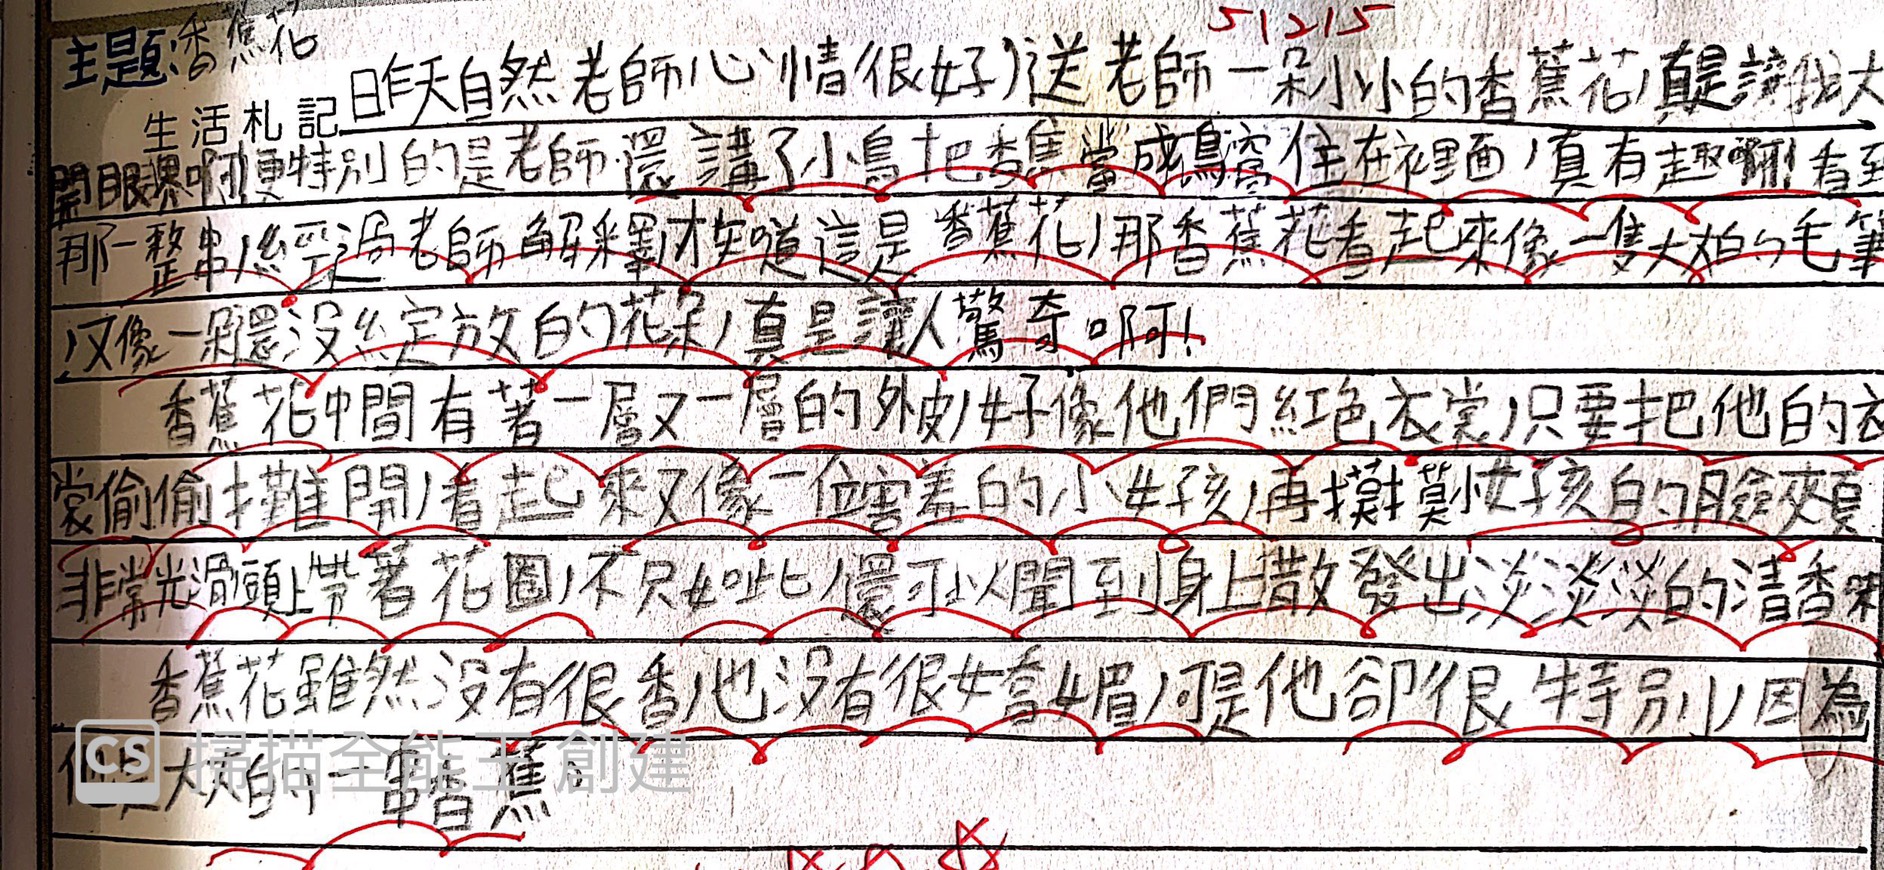 51215
主題:香蕉花
昨天自然老師心情很好,送老師一朵小小的香蕉花,真是讓我大
生活札記
開眼界啊!更特別的是老師還講了小鳥把香蕉當成鳥窩住在裡面,真有趣啊!看到
那一整串,經過老師解釋才知道這是香蕉花,那香蕉花看起來像一隻大大的毛筆
,又像一朵還沒綻放的花朵,真是讓人驚奇啊!
香蕉花中間有著一層又一層的外皮,好像他們紅色衣裳,只要把他的衣
裳偷偷攤開,看起來又像一位害羞的小女孩,再摸摸小女孩的臉頰
非常光滑頭上帶著花圈,不只如此,還可以聞到身上散發出淡淡淡的清香味
香蕉花雖然沒有很香,也沒有很嬌媚,可是他卻很特別,因為
他是大大的一串香蕉。
CS 掃描全能王 創建